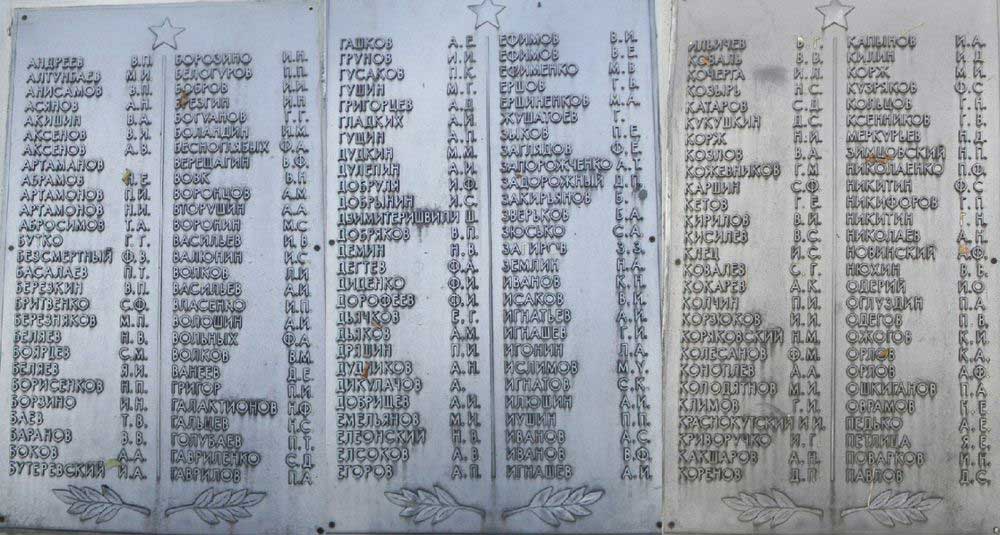 АНДРЕЕВ В.П.
АЛТУНБАЕВ М.И.
АНИСАМОВ В.П.
АСЯНОВ А.П.
АКИШИН В.А.
АКСЕНОВ В.И.
АКСЕНОВ А.В.
АРТАМАНОВ
АБРАМОВ П.Е.
АРТАМОНОВ П.И.
АРТАМОНОВ Н.И.
АБРОСИМОВ Т.А.
БУТКО Г.Г.
БЕЗСМЕРТНЫЙ Ф.В.
БАСАЛАЕВ П.Т.
БЕРЕЗКИН В.П.
БРИТВЕНКО С.Ф.
БЕРЕЗНЯКОВ М.П.
БЕЛЯЕВ Н.В.
БОЯРЦЕВ С.М.
БЕЛЯЕВ Я.И.
БОРИСЕНКОВ Н.П.
БОРЗИНО И.Н.
БАЕВ Т.В.
БАРАНОВ В.В.
БОКОВ А.А.
БУТЕРЕВСКИЙ И.А.
БОРОЗИНО И.Н.
БЕЛОГУРОВ П.П.
БОБРОВ И.И.
БРЕЗГИН И.Н.
БОГУАНОВ Г.Г.
БОЛАНДИН И.М.
БЕСНОГЛЯБЫХ Ф.А.
ВЕРЕЩАГИН В.Ф.
ВОВК В.Н.
ВОРОНЦОВ А.М.
ВТОРУШИН А.А.
ВОРОНИН М.С.
ВАСИЛЬЕВ И.В.
ВАЛЮНИН И.С.
ВОЛКОВ Л.И.
ВАСИЛЬЕВ А.И.
ВЛАСЕНКО И.П.
ВОЛОШИН А.И.
ВОЛЬНЫХ Ф.А.
ВОЛКОВ В.М.
ВАНЕЕВ Д.Е.
ГРИГОР П.И.
ГАЛАКТИОНОВ Н.Ф.
ГАЛЬЦЕВ Н.С.
ГОЛУБАЕВ П.Т.
ГАВРИЛЕНКО С.Д.
ГАВРИЛОВ П.А.
ГАШКОВ А.Е.
ГРУНОВ И.И.
ГУСАКОВ П.К.
ГУШИН М.Г.
ГРИГОРЦЕВ А.Д.
ГЛАДКИХ А.И.
ГУЩИН А.П.
ДУДКИН М.М.
ДУДЕПИН А.И.
ДОБРУЛЯ И.Ф.
ДОБРЫНИН И.С.
ДЗИМИТЕРИШВИЛИ Ш.
ДОБРЯКОВ В.П.
ДЕМИН Н.В.
ДЕГТЕВ Ф.А.
ДИДЕНКО Ф.И.
ДОРОФЕЕВ Ф.И.
ДЬЯЧКОВ Е.Г.
ДЬЯКОВ А.М.
ДРЯШИН П.И.
ДУДНИКОВ А.Н.
ДИКУЛАЧОВ А.
ДОБРИЩЕВ А.И.
ЕМЕЛЬЯНОВ М.И.
ЕЛЕОНСКИЙ Н.В.
ЕЛСОКОВ А.В.
ЕГОРОВ А.П.
ЕФИМОВ В.И.
ЕФИМОВ В.Е.
ЕФИМЕНКО М.В.
ЕРЦОВ Г.
ЕРШИНЕНКОВ М.А.
ЖУШАТОЕВ Г.
ЗЫКОВ П.Е.
ЗАГЛЯДОВ Ф.Е.
ЗАПОРОЖЧЕНКО А.Т.
ЗАДОРОЖНЫЙ Д.П.
ЗАКИРЬЯНОВ Б.
ЗВЕРЬКОВ Б.А.
ЗЮСЬКО С.А.
ЗАГИРОВ З.З.
ЗЕМЛИН Н.А.
ИВАНОВ К.Н.
ИСАКОВ В.И.
ИГНАТЬЕВ А.И.
ИГНАШЕВ Г.И.
ИГОНИН Л.А.
ИСЛИМОВ М.У.
ИГНАТОВ С.К.
ИЛЮШИН А.И.
ИУШИН П.П.
ИВАНОВ А.С.
ИВАНОВ В.Ф.
ИГНАШЕВ А.И.
ИЛЬИЧЕВ В.Г.
КОВАЛЬ В.В.
КОЧЕРГА И.Л.
КОЗЫРЬ Н.С.
КАТАРОВ С.Д.
КУКУШКИН Д.С.
КОРЖ Н.И.
КОЗЛОВ В.А.
КОЖЕВНИКОВ Г.М.
КАРШИН С.Ф.
КЕТОВ Г.Е.
КИРИЛОВ В.И.
КИСИЛЕВ В.С.
КНЕЦ И.С.
КОВАЛЕВ С.Г.
КОКАРЕВ А.К.
КОЛЧИН П.И.
КОРЗЮКОВ И.И.
КОРЯКОВСКИЙ Н.М.
КОЛЕСАНОВ Ф.М.
КОНОПЛЕВ А.А.
КОЛОДЯТНОВ М.И.
КЛИМОВ Г.И.
КРАСПОКУТСКИЙ И.И.
КРИВОРУЧКО И.Г.
КАКШАРОВ А.Н.
КОРЕНОВ Д.П.
КАПЫНОВ И.А.
КИЛИН И.Д.
КОРЖ М.И.
КУЗРЯКОВ Ф.С.
КОЛЬЦОВ Г.Н.
КСЕННИКОВ Г.В.
МЕРКУРЬЕВ Н.Д.
ЗИМЦОВСКИЙ Н.П.
НИКОЛАЕНКО П.Ф.
НИКИТИН Ф.С.
НИКИФОРОВ Г.П.
НИКИТИН Г.Н.
НИКОЛАЕВ А.Н.
НОВИНСКИЙ А.Ф.
НЮХИН В.В.
ОДЕРИЙ И.О.
ОГЛУЗДИН П.А.
ОДЕГОВ П.В.
ОЖОГОВ К.И.
ОРЛОВ К.А.
ОРЛОВ А.Ф.
ОШКИГАНОВ П.А.
ОВРАМОВ Н.Е.
ПЕДЬКО А.Е.
ПЕТЛИЦА Я.Е.
ПОВАРКОВ И.П.
ПАВЛОВ Д.С.